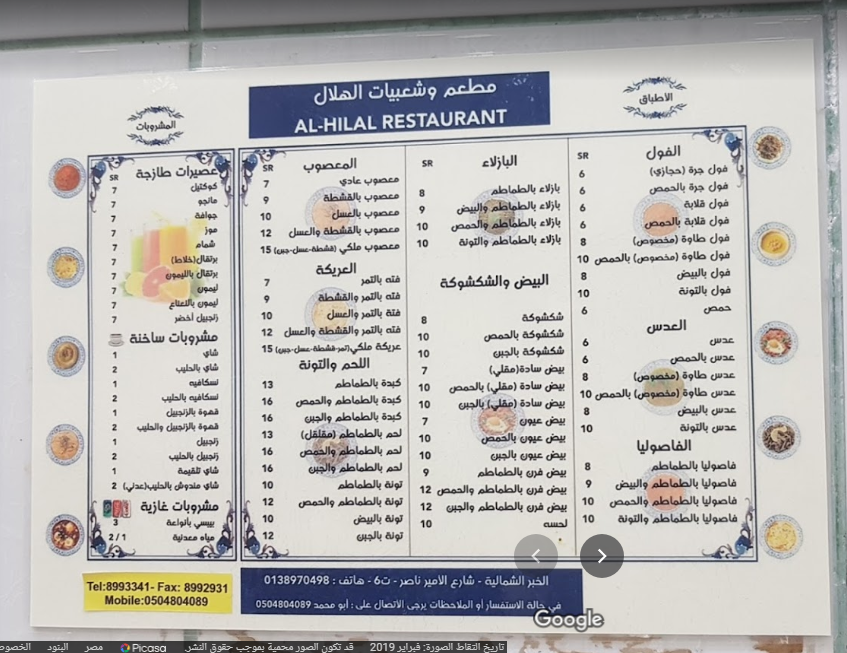 مطعم وشعبيات الهلال
AL-HILAL RESTAURANT
الأطباق
المشروبات
الفول SR
فول جرة (حجازي) 6
فول جرة بالحمص 6
فول قلابة 6
فول قلابة بالحمص 6
فول طاوة (مخصوص) 8
فول طاوة (مخصوص) بالحمص 10
فول بالبيض 8
فول بالتونة 10
حمص 6
العدس
عدس 6
عدس بالحمص 6
عدس طاوة (مخصوص) 8
عدس طاوة (مخصوص) بالحمص 10
عدس بالبيض 8
عدس بالتونة 10
الفاصوليا
فاصوليا بالطماطم 8
فاصوليا بالطماطم والبيض 9
فاصوليا بالطماطم والحمص 10
فاصوليا بالطماطم والتونة 10
البازلاء SR
بازلاء بالطماطم 8
بازلاء بالطماطم والبيض 9
بازلاء بالطماطم والحمص 10
بازلاء بالطماطم والتونة 10
البيض والشكشوكة
شكشوكة 8
شكشوكة بالحمص 10
شكشوكة بالجبن 10
بيض سادة (مقلي) 7
بيض سادة (مقلي) بالحمص 10
بيض سادة (مقلي) بالجبن 10
بيض عيون 7
بيض عيون بالحمص 10
بيض عيون بالجبن 10
بيض فرن بالطماطم 9
بيض فرن بالطماطم والحمص 12
بيض فرن بالطماطم والجبن 12
لحسه 10
المعصوب SR
معصوب عادي 7
معصوب بالقشطة 9
معصوب بالعسل 10
معصوب بالقشطة والعسل 12
معصوب ملكي (قشطة-عسل-جبن) 15
العريكة
فته بالتمر 7
فته بالتمر والقشطة 9
فتة بالتمر والعسل 10
فته بالتمر والقشطة والعسل 12
عريكة ملكي (تمر-قشطة-عسل-جبن) 15
اللحم والتونة
كبدة بالطماطم 13
كبدة بالطماطم والحمص 16
كبدة بالطماطم والجبن 16
لحم بالطماطم (مقلقل) 13
لحم بالطماطم والحمص 16
لحم بالطماطم والجبن 16
تونة بالطماطم 10
تونة بالطماطم والحمص 12
تونة بالبيض 10
تونة بالجبن 12
عصيرات طازجة SR
كوكتيل 7
مانجو 7
جوافة 7
موز 7
شمام 7
برتقال (خلاط) 7
برتقال بالليمون 7
ليمون 7
ليمون بالنعناع 7
زنجبيل أخضر 7
مشروبات ساخنة
شاي 1
شاي بالحليب 2
نسكافيه 1
نسكافيه بالحليب 2
قهوة بالزنجبيل 1
قهوة بالزنجبيل والحليب 2
زنجبيل 1
زنجبيل بالحليب 2
شاي تلقيمة 1
شاي مندوش بالحليب (عدني) 2
مشروبات غازية
بيبسي بأنواعة 3
مياه معدنية 1 / 2
Tel:8993341- Fax: 8992931
Mobile:0504804089
الخبر الشمالية - شارع الأمير ناصر - ت6 - هاتف : 0138970498
في حالة الاستفسار أو الملاحظات يرجى الاتصال على : أبو محمد 0504804089
Google
تاريخ التقاط الصورة: فبراير 2019 قد تكون الصور محمية بموجب حقوق النشر. Picasa مصر البنود الخصوص